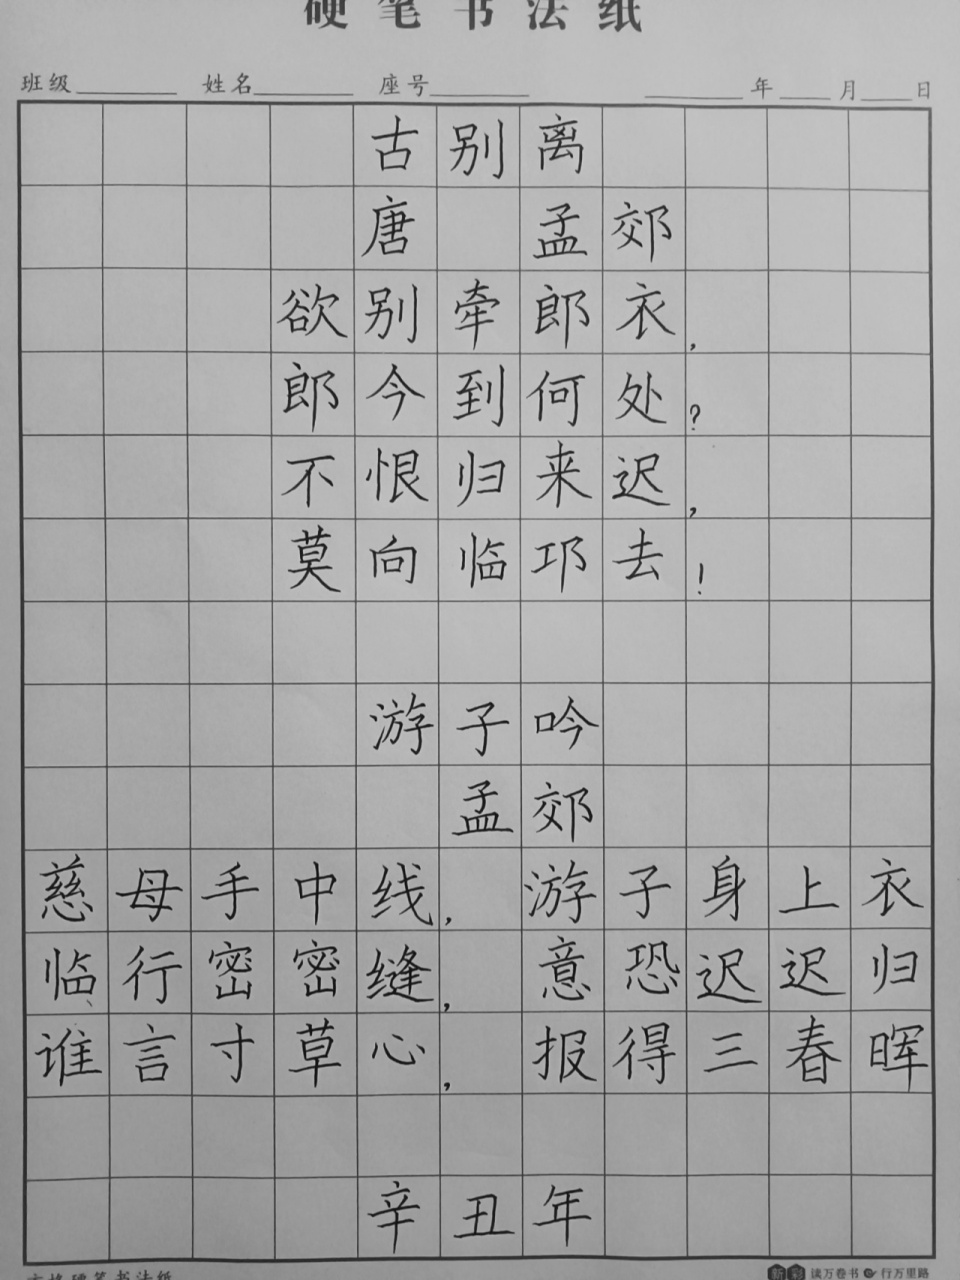 硬笔书法纸
班级 姓名 座号 年 月 日
古别离
唐 孟郊
欲别牵郎衣,
郎今到何处?
不恨归来迟,
莫向临邛去!
游子吟
孟郊
慈母手中线, 游子身上衣
临行密密缝, 意恐迟迟归
谁言寸草心, 报得三春晖
辛丑年
方格硬笔书法纸 新彩 读万卷书 行万里路